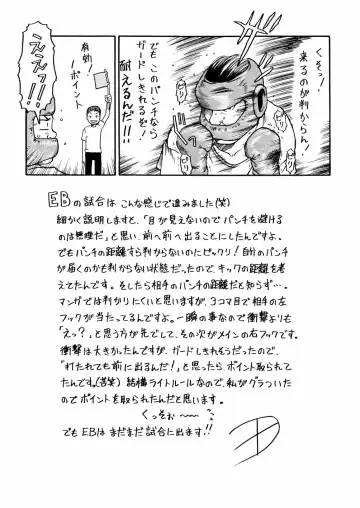 くそっ！
来るのが判からん！
でもこのパンチなら
ガードしきれるぞ！
耐えるんだ!!
ビリ
ビリ
ビリ
ビリ
有効！
1ポイント
ええっ!!!
EBの試合はこんな感じで進みました(笑)
細かく説明しますと、「目が見えないのでパンチを避ける
のは無理だ」と思い、前へ前へ出ることにしたんですよ。
でもパンチすら判からないのにビックリ！自分のパンチ
が届くのかも判からない状態だったので、キックの距離を考
えてたんです。そしたら相手のパンチの距離だと知らず…。
マンガでは判かりにくいと思いますが、3コマ目で相手の左
フックが当たってるんですよ。一瞬の事なので衝撃よりも
「えっ？」と思う方が先でして、その次がメインの右フックです。
衝撃は大きかったんですが、ガードしきれそうだったので、
「打たれても前に出るんだ！」と思ったら、ポイント取られて
たんです。(苦笑)結構ライトルールなので、私がグラついた
のでポイントを取られたんだと思います。
くっそぉ〜〜
でもEBはまだまだ試合に出ます!!